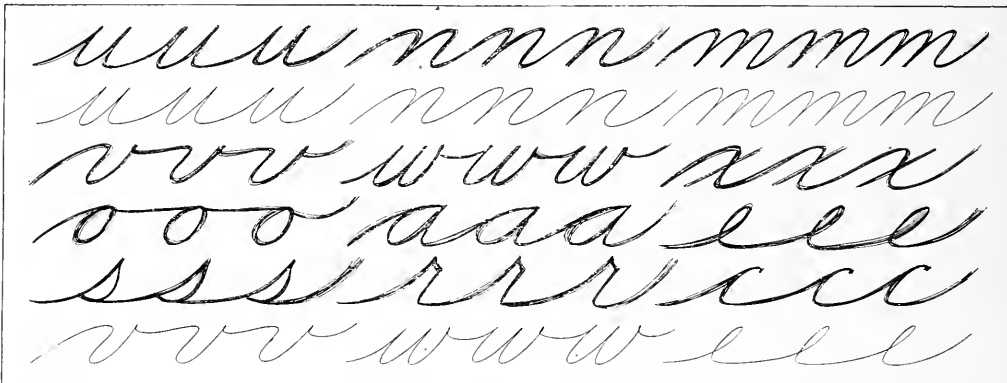 u u u n n n m m m
u u u n n n m m m
v v v w w w x x x
o o o a a a e e e
s s s r r r c c c
v v v w w w e e e